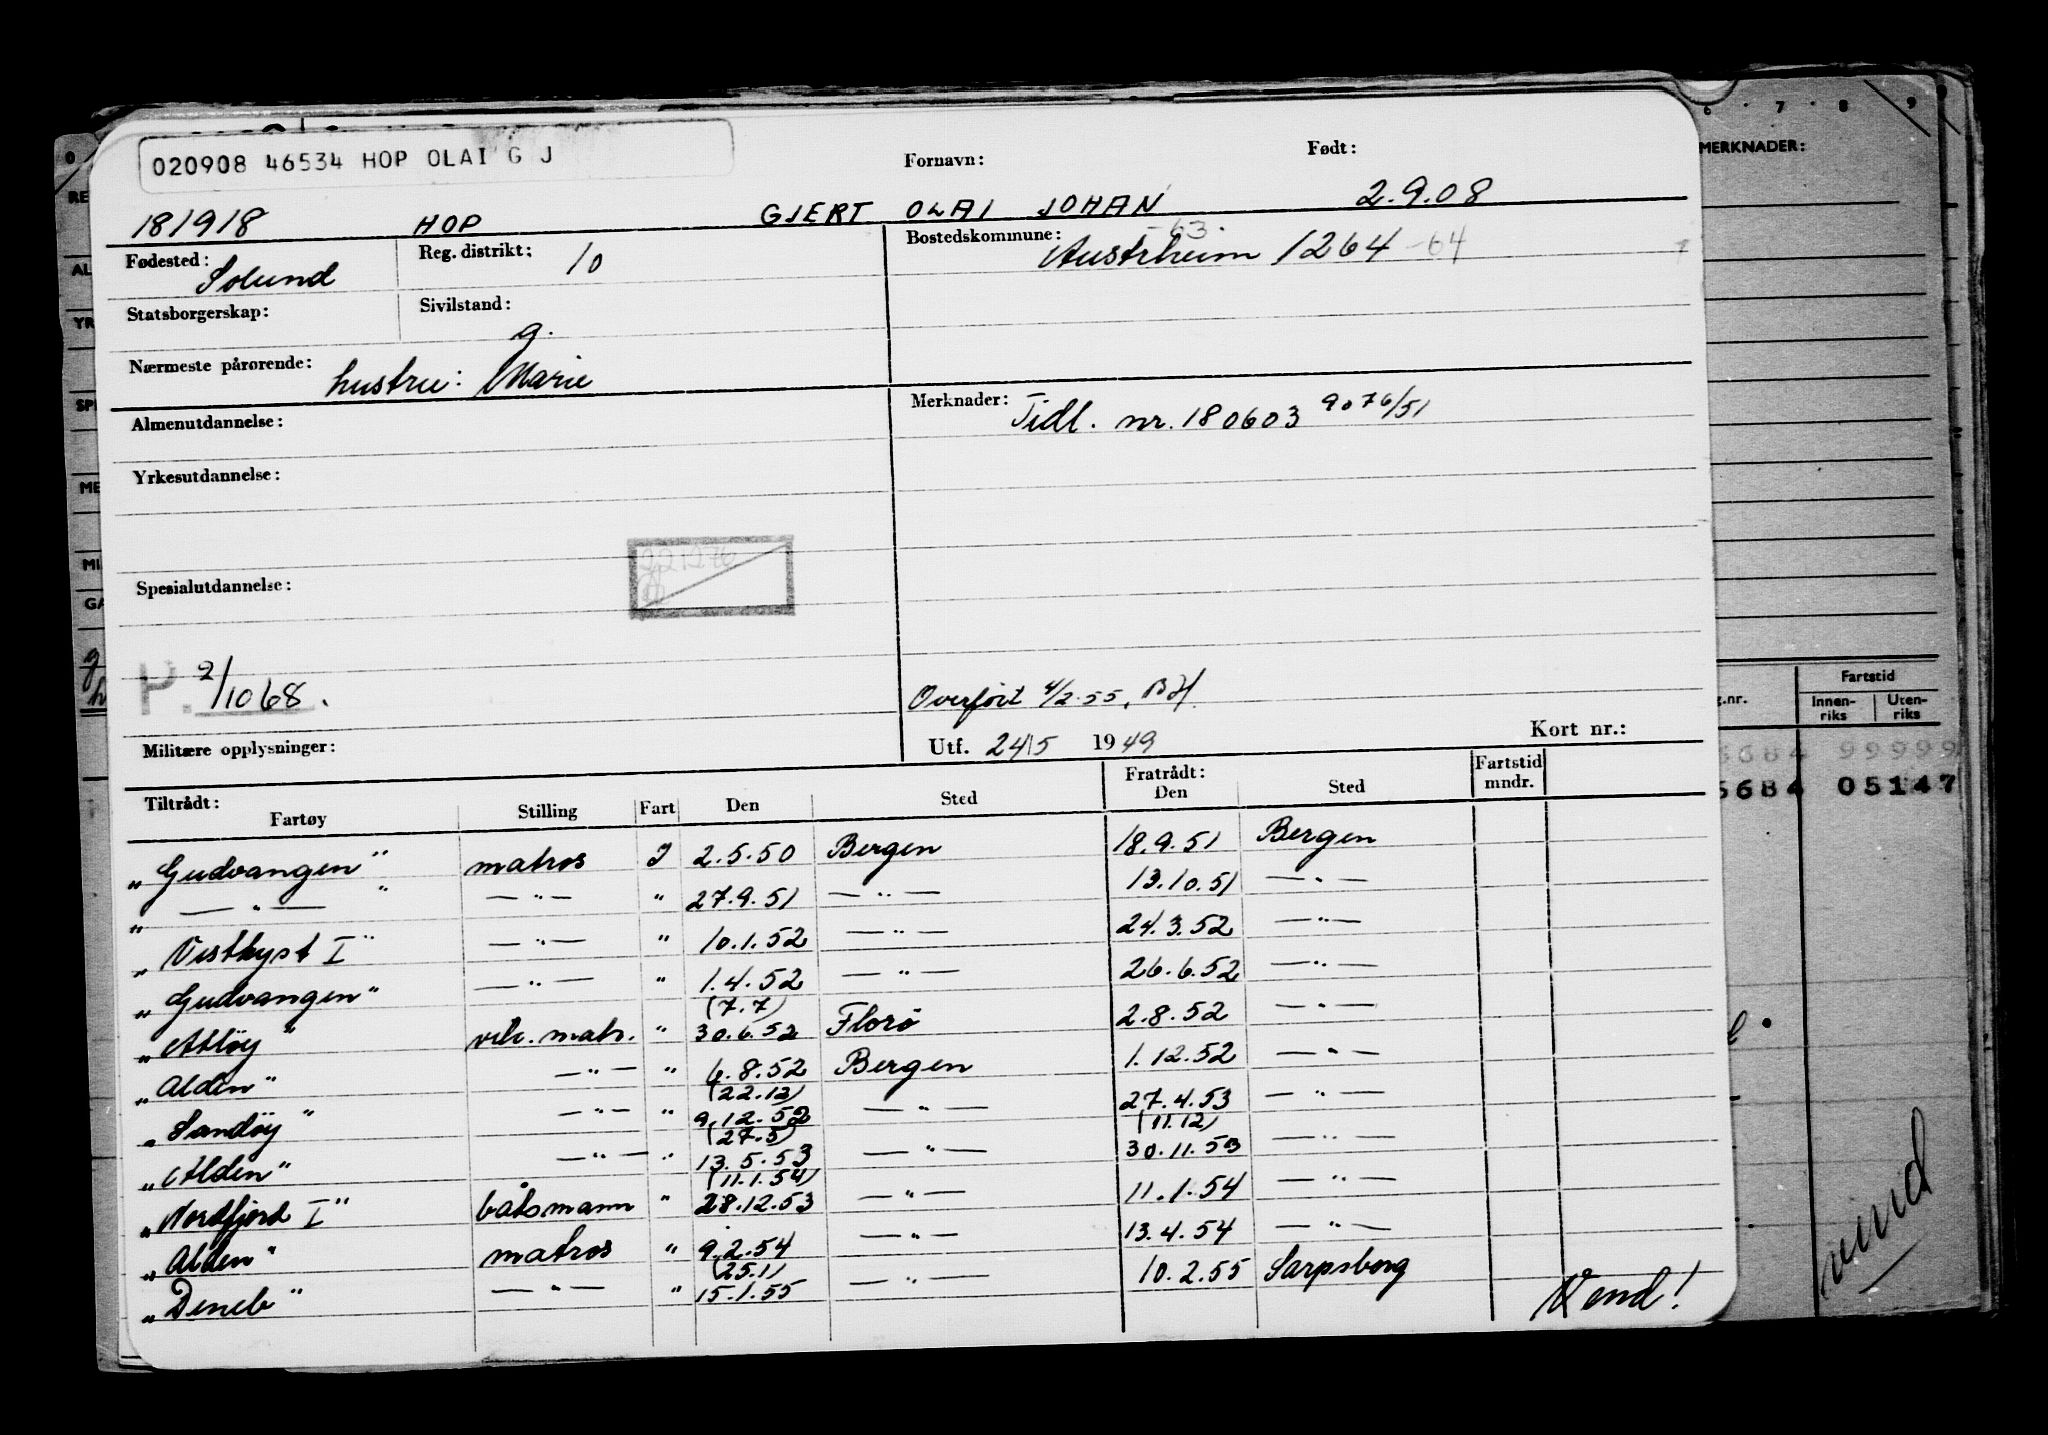 020908 46534 HOP OLAI G J
Fornavn: Født:
181918 HOP GJERT OLAI JOHAN 2.9.08
Fødested: Solund Reg. distrikt: 10 Bostedskommune: -63. Austrheim 1264 -64
Statsborgerskap: Sivilstand: g.
Nærmeste pårørende: hustru: Marie
Almenutdannelse: Merknader: Tidl. nr. 180603 9076/51
Yrkesutdannelse:
221276
Spesialutdannelse:
P. 2/10 68. Overført 4/2-55, BH.
Militære opplysninger: Utf. 24/5 1949 Kort nr.:
Tiltrådt: Fratrådt: Fartstid
Fartøy Stilling Fart Den Sted Den Sted mndr.
"Gudvangen" matros I 2.5.50 Bergen 18.9.51 Bergen
" — " — " — " — " 27.9.51 — " — 13.10.51 — " —
"Vestkyst I" — " — " 10.1.52 — " — 24.3.52 — " —
"Gudvangen" — " — " 1.4.52 — " — 26.6.52 — " —
(7.7)
"Atløy" vik. matr. " 30.6.52 Florø 2.8.52 — " —
"Alden" — " — " 6.8.52 Bergen 1.12.52 — " —
(22.12)
"Sandøy" — " — " 9.12.52 — " — 27.4.53 — " —
(27.5) (11.12)
"Alden" — " — " 13.5.53 — " — 30.11.53 — " —
(11.1.54)
"Nordfjord I" båtsmann " 28.12.53 — " — 11.1.54 — " —
"Alden" matros " 9.2.54 — " — 13.4.54 — " —
(25.1)
"Deneb" — " — " 15.1.55 — " — 10.2.55 Sarpsborg
Vend!
6 7 8 9
MERKNADER:
Fartstid
g.nr. Innenriks Utenriks
6684 99999
6684 05147
vend